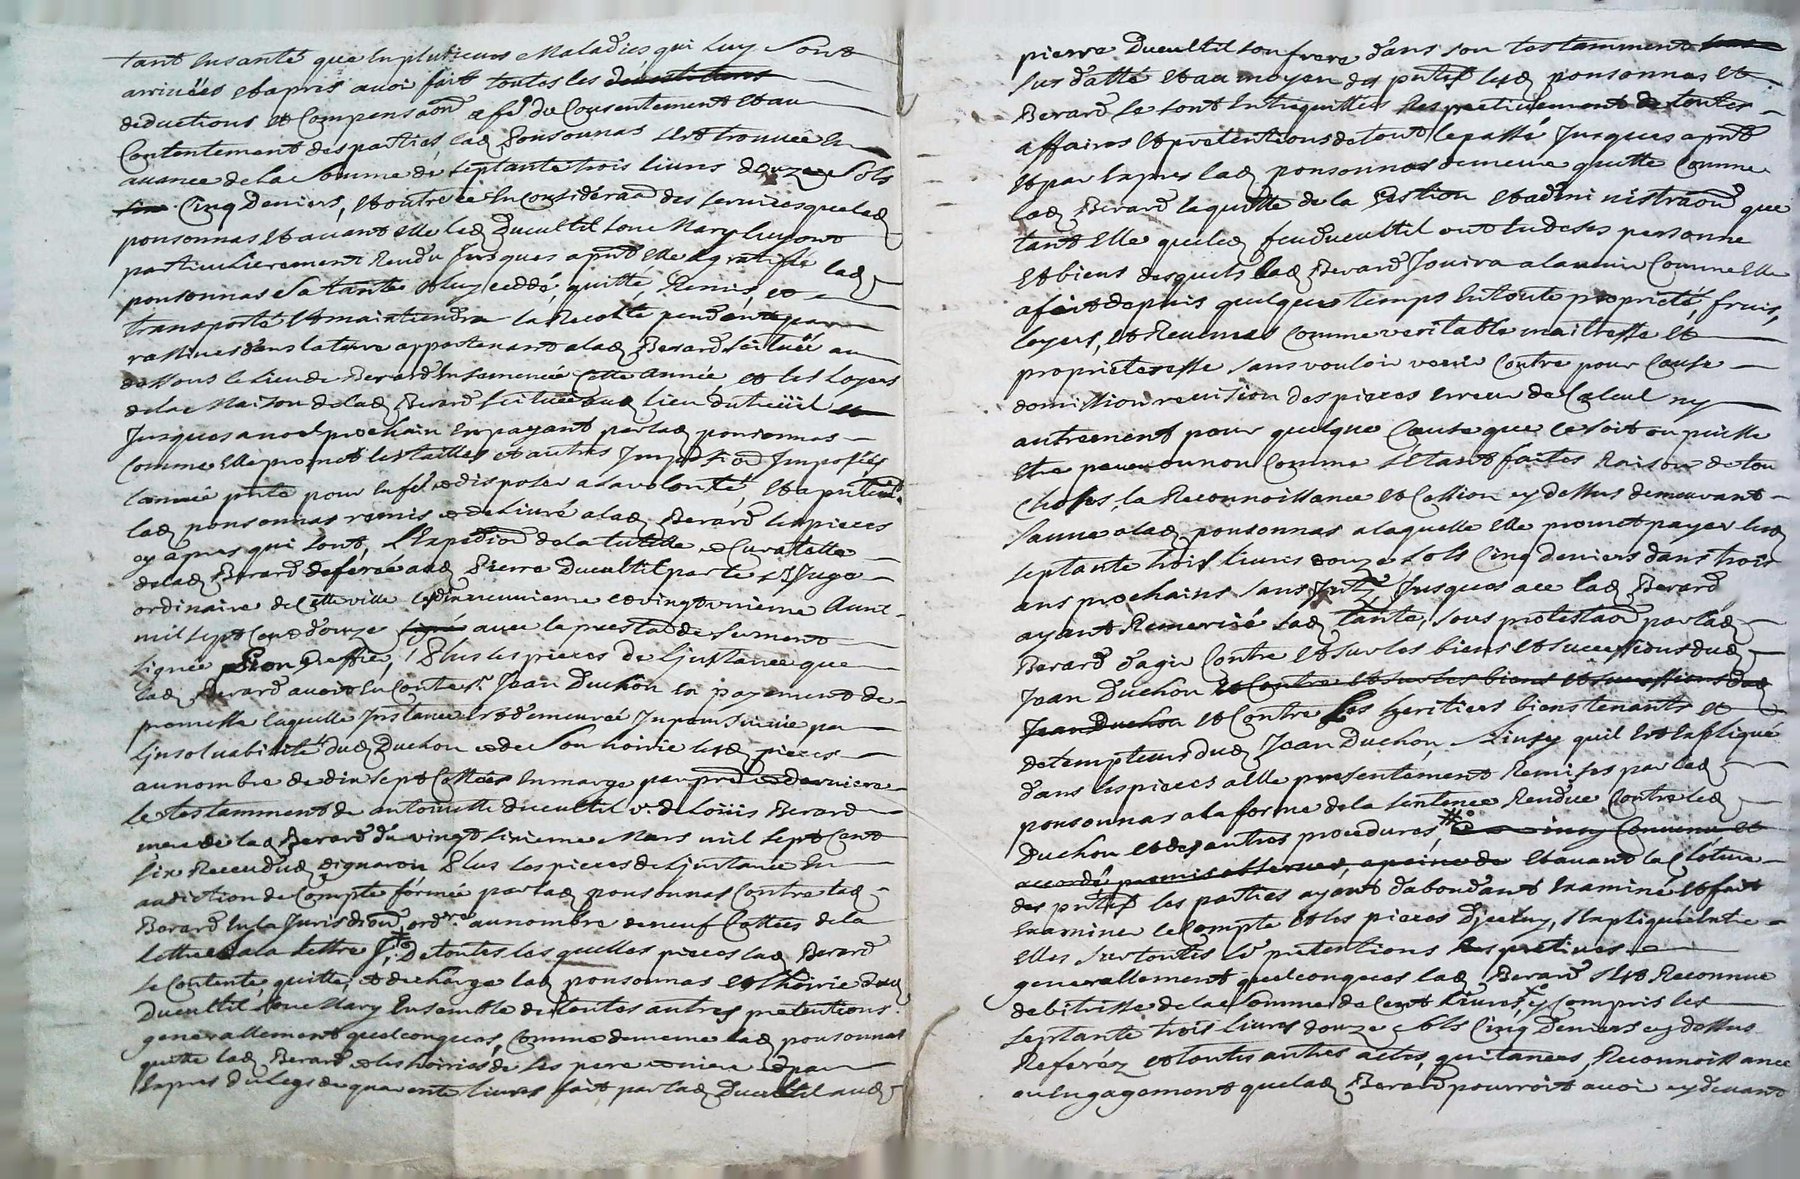 tant en santé que en plusieurs Maladies qui luy sont
arrivées et apris avoir fait toutes les
deductions et Compensaõn a fé du Consentement et au
Contentement des parties lad ponsonnas s'est trouvée en
avance de la somme de septante trois livres douze sols
Cinq Deniers, et outre ce En consideraõn des services que lad
ponsonnas et avant elle led Ducultil son Mary luy ont
particulierement Rendu Jusques a pnt elle a gratifié lad
ponsonnas sa tante et luy ceddé, quitté, Remis, et
transporté et maintiendra la Recolte pendente par
rassines dans la terre appartenant a lad Berard scituée au
dessous le lieu de Berard Ensemencée cette année, et les Loyers
de la Maison de lad Berard scituée aud lieu du treüil
Jusques a noel prochain en payant par lad ponsonnas
Comme Elle promet les tailles et autres Impositiõn Imposées
l'année pnte pour en fé et disposer a sa volonté, et a pntemt
lad ponsonnas remis et delivré a lad Berard les pieces
cy apres qui sont, L'Expediõn de la tutelle et Curatelle
de lad Berard deferée aud Pierre Ducultil par le sr Juge
ordinaire de Cette ville le dixneuvieme et vingtunieme Aunt
mil sept Cent d'ouze avec la presta de serment
signée greffier, Plus les pieces de L'instance que
lad Berard avoit En Contre sr Jean Duchon en payement de
promesse laquelle Instance est demeurée Inpoursuivie par
L'insolvabilité dud Duchon et de son hoirie lesd pieces
au nombre de dix sept Cottées En marge par pre et derniere
le testamment de antoinette ducultil ve de Loüis Berard
mere de lad Berard du vingt sixieme Mars mil sept Cent
six Receu dud Plus les pieces de L'instance En
audiction de Compte formée par lad ponsonnas Contre lad
Berard En la Jurisdiõn ordre au nombre de neuf Cottées de la
lettre a la lettre J, De toutes lesquelles pieces lad Berard
se Contente, quitte, et décharge lad ponsonnas et l'hoirie dud
Ducultil son Mary Ensemble de toutes autres pretentions
generallement quelconques, Comme de meme lad ponsonnas
quitte lad Berard et les hoiries de ses pere et mere et par
Expres du legs de quarente livres fait par lad Ducultil aud
pierre Ducultil son frere dans son testamment
sus datté et au moyen des pntes lesd ponsonnas et
Berard se sont Entrequittées Respectivement de toutes
affaires et pretentions de tout le passé Jusques a pnt
et par Expres lad ponsonnas demeure quitte Comme
lad Berard la quitte de la Gestion et administraõn que
tant Elle que led feu ducultil ont Eu de ses personne
et biens desquels lad Berard Jouira a l'avenir Comme Elle
a fait depuis quelque temps En toute proprieté, fruis,
loyers, et Revenus Comme veritable maitresse et
proprieteresse sans vouloir venir Contre pour Cause
d'omission revision des pieces erreur de Calcul ny
autrement pour quelque Cause que ce soit ou puisse
Etre preveu ou non Comme s'etant faites Raison de tou
Choses, la Reconnoissance et Cession cy dessus demeurant
sauve a lad ponsonnas a laquelle Elle promet payer lesd
septante trois livres douze sols Cinq deniers dans trois
ans prochains sans Jusques a ce lad Berard
ayant Remercié sad tante, sous protestaõn par lad
Berard d'agir Contre et sur les biens et successions dud
Jean Duchon et Contre et sur les biens et successions dud
Jean Duchon et Contre Les heritiers biens tenants et
detempteurs dud Jean Duchon, ainsy qu'il est Expliqué
dans les pieces a elle presentement Remises par lad
ponsonnas a la forme de la sentence Rendue Contre led
Duchon et des autres procedures # ainsy Convenu et
accordé promis observer, a peine de et avant la Cloture
des pntes les parties ayant d'abondant Examiné et fait
Examiner le Compte et les pieces D'iceluy, s'expliquée Entre
elles sur toutes leurs pretentions Respectives
generallement quelconques lad Berard s'est Reconnue
debitrisse de la somme de Cent Livres, y Compris les
septante trois livres douze sols Cinq Deniers cy dessus
Referéz et toutes autres actes, quitances, Reconnoissance
ou Engagement que lad Berard pourroit avoir cy devant